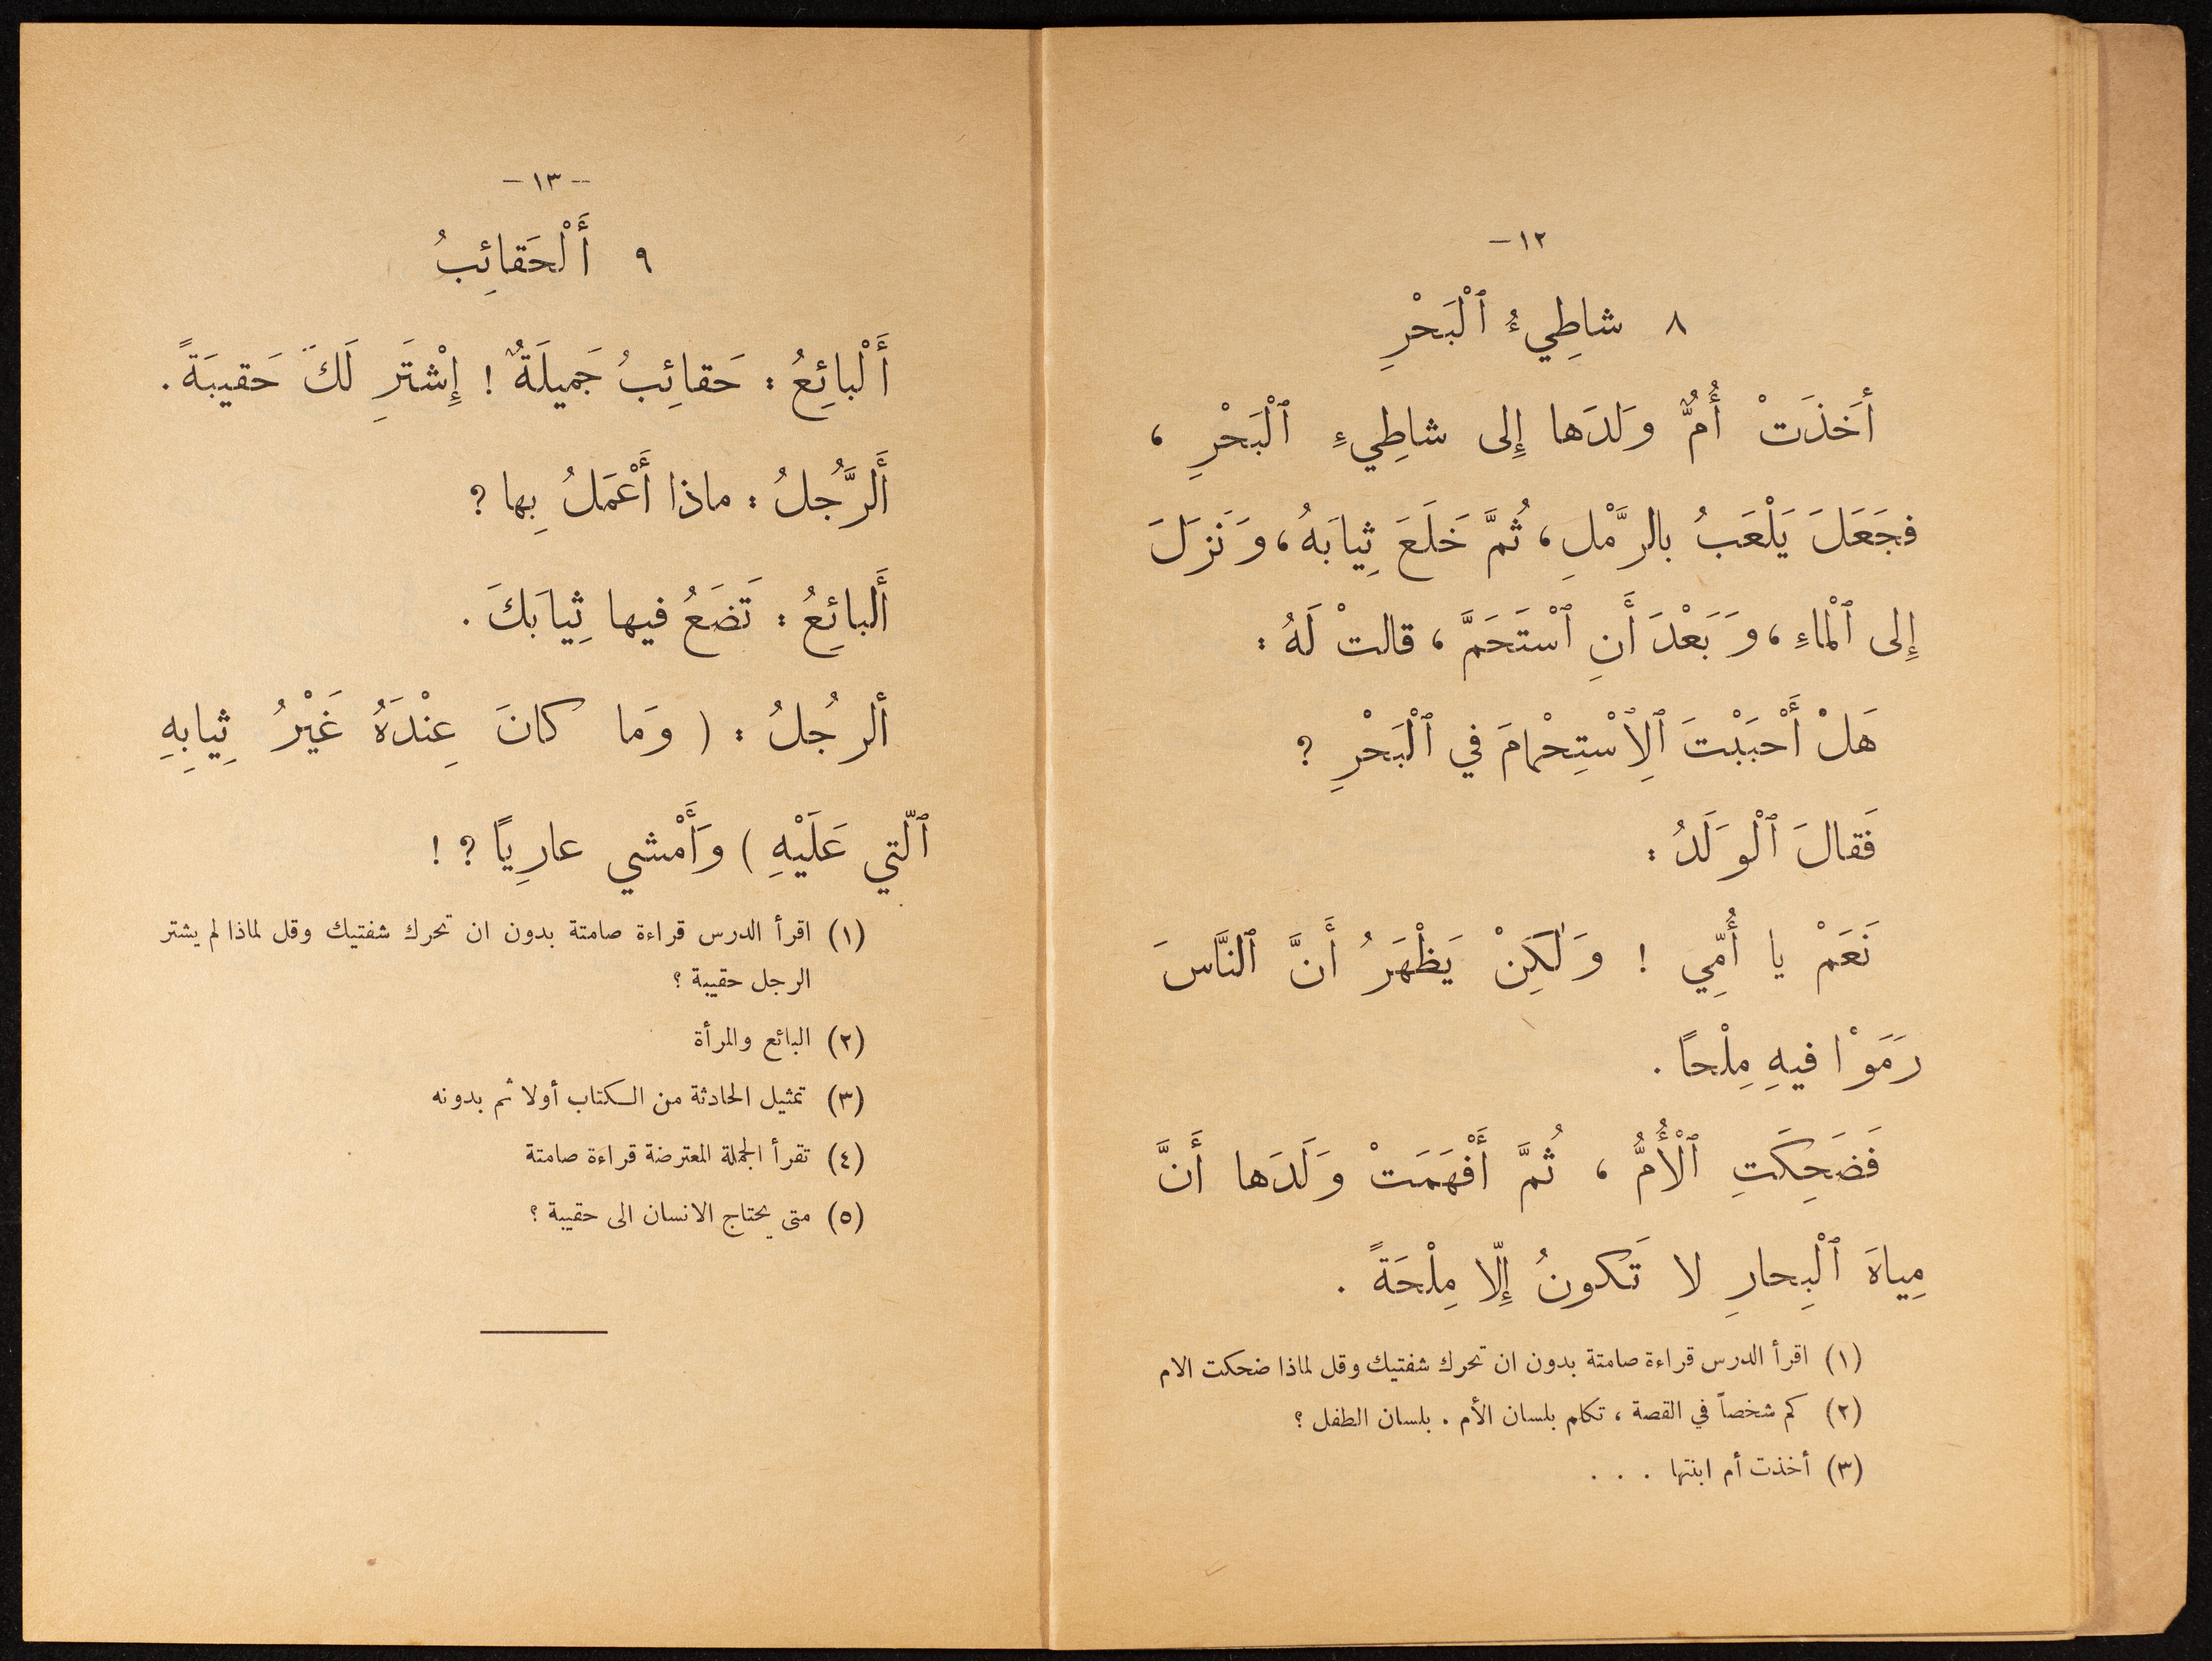 ١٢ —
٨ شاطِيءُ ٱلْبَحْرِ
أَخذَتْ أُمٌّ وَلدَها إِلى شاطِيءِ ٱلْبَحْرِ ،
فجَعَلَ يَلْعَبُ بالرَّمْلِ ، ثُمَّ خَلَعَ ثِيابَهُ ، وَنزَلَ
إِلى ٱلْماءِ ، وَبَعْدَ أَنِ ٱسْتَحَمَّ ، قالتْ لَهُ :
هَلْ أَحْبَبْتَ ٱلِٱسْتِحْمامَ في ٱلْبَحْرِ ؟
فَقالَ ٱلْوَلَدُ :
نَعَمْ يا أُمِّي ! وَلٰكِنْ يَظْهَرُ أَنَّ ٱلنَّاسَ
رَمَوْا فيهِ مِلْحاً .
فَضَحِكَتِ ٱلْأُمُّ ، ثُمَّ أَفْهَمَتْ وَلَدَها أَنَّ
مِياهَ ٱلْبِحارِ لا تَكونُ إِلّا مِلْحَةً .
(١) اقرأ الدرس قراءة صامتة بدون ان تحرك شفتيك وقل لماذا ضحكت الام
(٢) كم شخصاً في القصة ، تكلم بلسان الأم . بلسان الطفل ؟
(٣) أخذت أم ابنتها . . .
— ١٣ —
٩ أَلْحَقائِبُ
أَلْبائِعُ : حَقائِبُ جَميلَةٌ ! إِشْتَرِ لَكَ حَقيبَةً .
أَلرَّجُلُ : ماذا أَعْمَلُ بِها ؟
أَلبائِعُ : تَضَعُ فيها ثِيابَكَ .
ألرجُلُ : ( وَما كانَ عِنْدَهُ غَيْرُ ثِيابِهِ
ٱلّتي عَلَيْهِ ) وَأَمْشي عارِيًا ؟ !
(١) اقرأ الدرس قراءة صامتة بدون ان تحرك شفتيك وقل لماذا لم يشتر
الرجل حقيبة ؟
(٢) البائع والمرأة
(٣) تمثيل الحادثة من الكتاب أولا ثم بدونه
(٤) تقرأ الجملة المعترضة قراءة صامتة
(٥) متى يحتاج الانسان الى حقيبة ؟